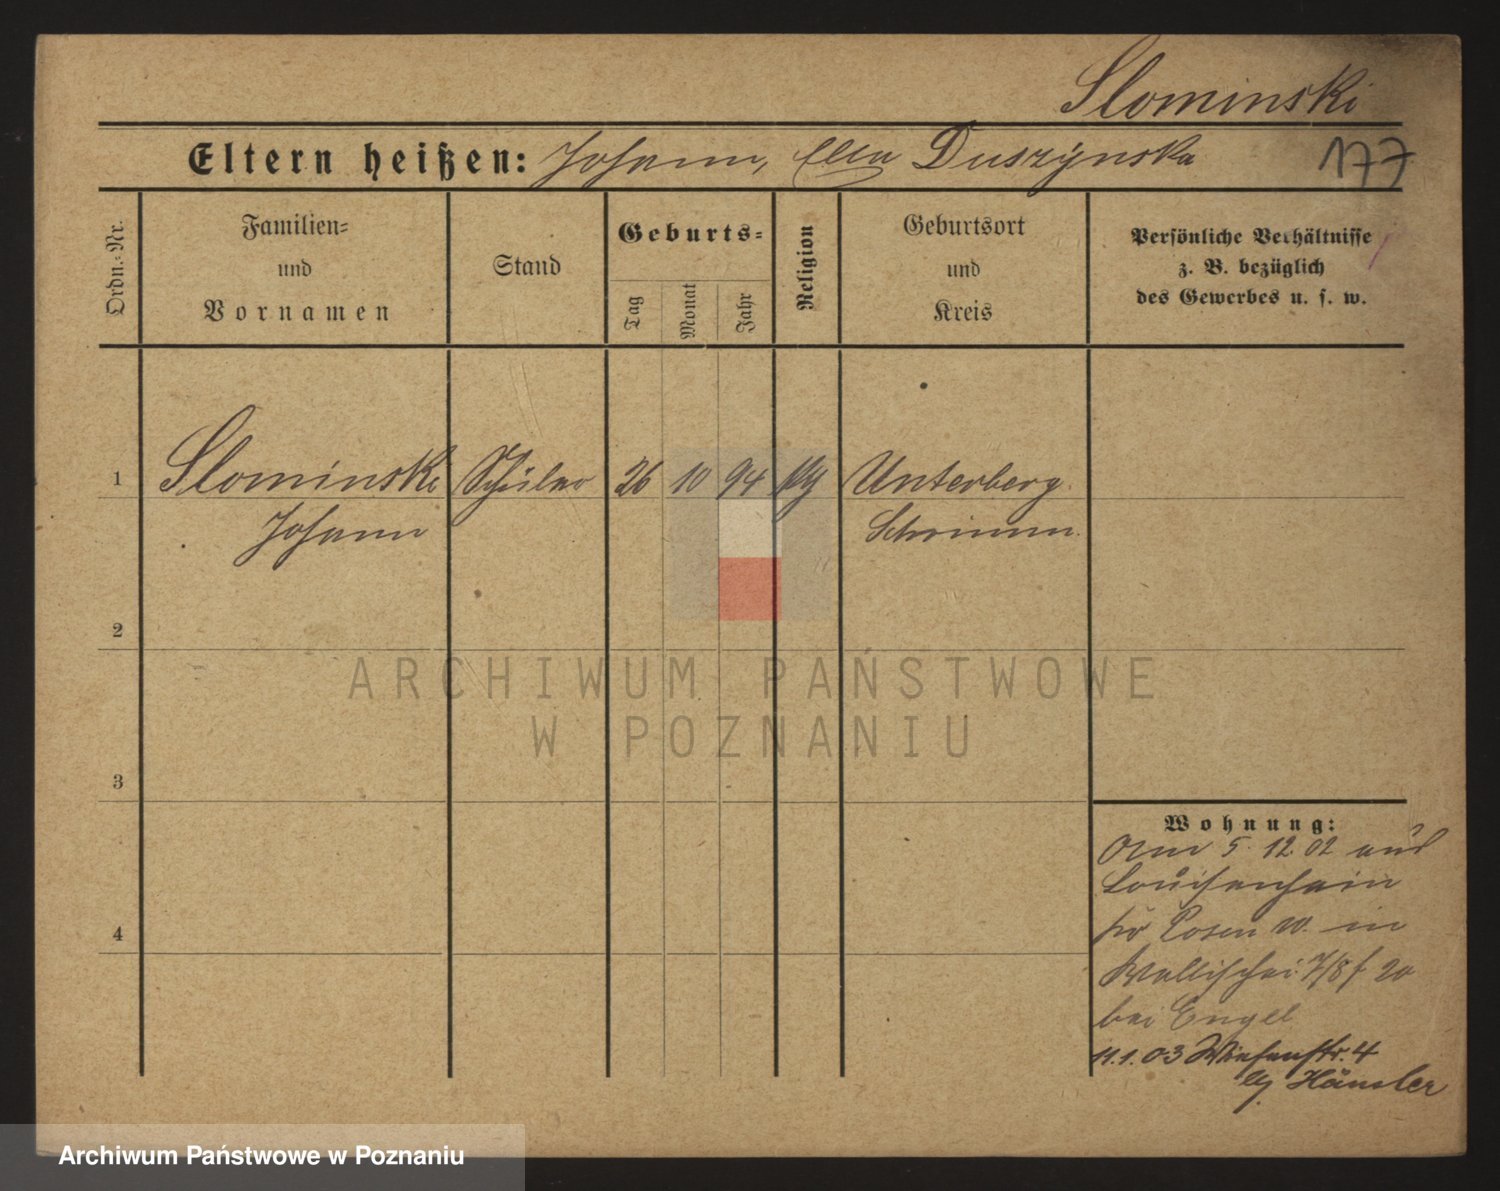 Slominski
Eltern heißen: Johann, Duszynska
177
Ordn.-Nr.
Familien-
und
Vornamen
Stand
Geburts-
Tag
Monat
Jahr
Religion
Geburtsort
und
Kreis
Persönliche Verhältnisse
z. B. bezüglich
des Gewerbes u. s. w.
1
Slominski Schüler 26 10 94 Unterberg
Johann Schrimm.
2
3
4
Wohnung:
5. 12 02 aus
Louisenhain
Posen W. in
Wallischei 7/8 f 20
bei Engel
11.1.03 Wiesenstr. 4
Händler
ARCHIWUM PAŃSTWOWE
W POZNANIU
Archiwum Państwowe w Poznaniu